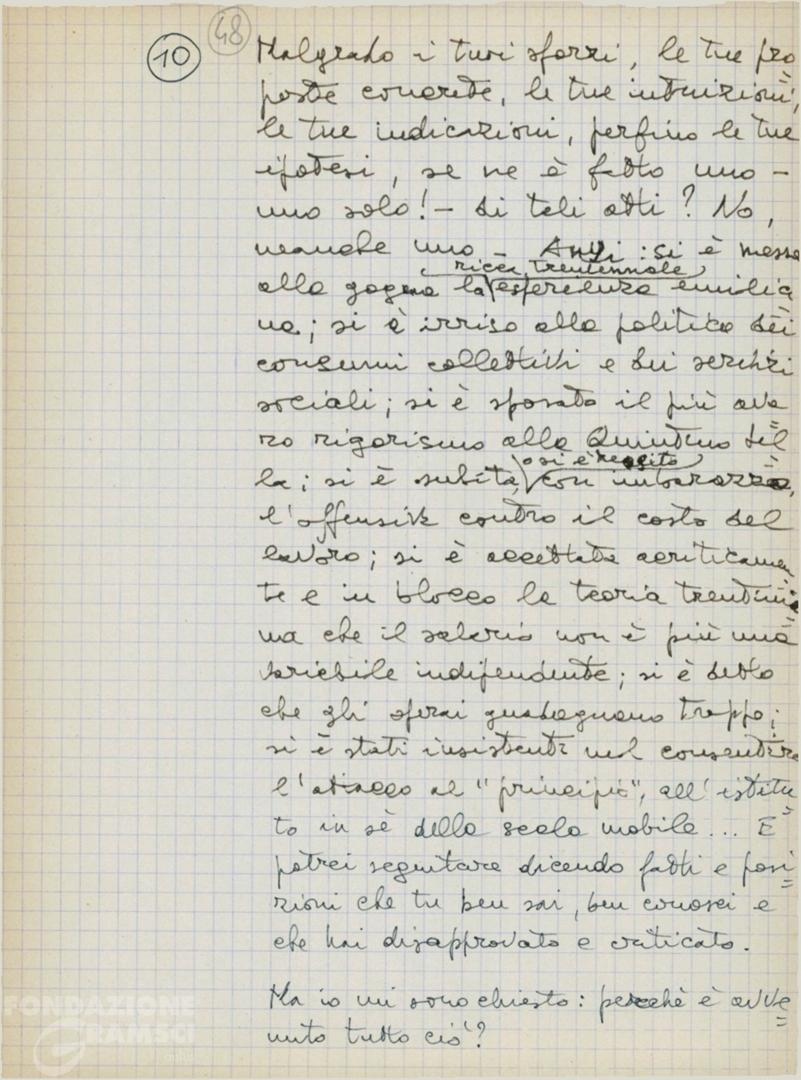 10 48
Malgrado i tuoi sforzi, le tue pro=
poste concrete, le tue intuizioni,
le tue indicazioni, perfino le tue
ipotesi, se ne è fatto uno -
uno solo! - di tali atti? No,
neanche uno - Anzi: si è messa
ricca, trentennale
alla gogna la esperienza emilia=
na; si è irriso alla politica dei
consumi collettivi e dei servizi
sociali; si è sposato il più ava=
ro rigorismo alla Quintino Sel=
o si è reagito
la; si è subita, con imbarazzo,
l'offensiva contro il costo del
lavoro; si è accettata acriticamen=
te e in blocco la teoria trentinia=
na che il salario non è più una
variabile indipendente; si è detto
che gli operai guadagnano troppo;
si è stati insistenti nel consentire
l'attacco al "principio", all'istitu=
to in sè della scala mobile... E
potrei seguitare dicendo fatti e posi=
zioni che tu ben sai, ben conosci e
che hai disapprovato e criticato.
Ma io mi sono chiesto: perchè è avve=
nuto tutto ciò?
FONDAZIONE
GRAMSCI